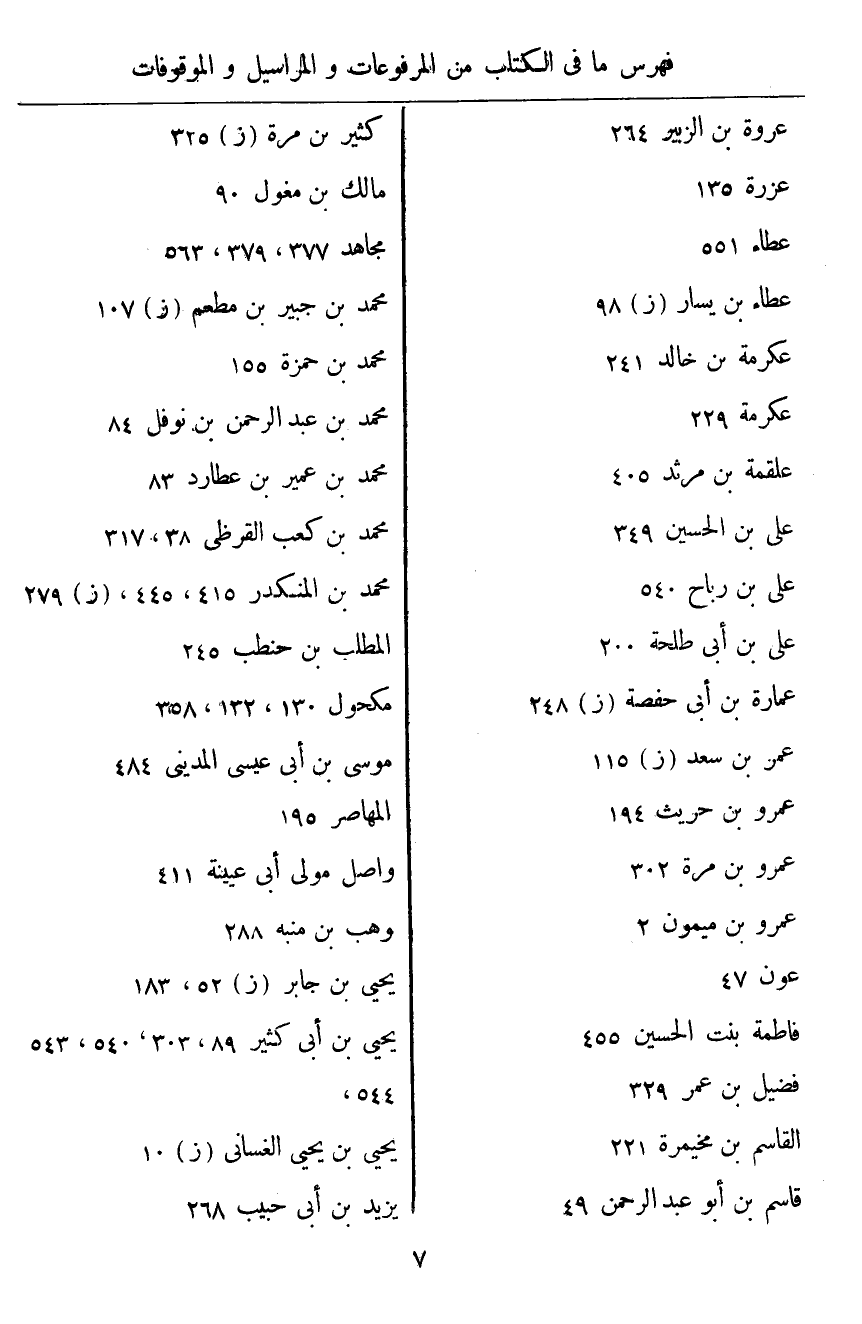 فهرس ما فى الكتاب من المرفوعات و المراسيل و الموقوفات
عروة بن الزبير ٢٦٤
عزرة ١٣٥
عطاء ٥٥١
عطاء بن يسار (ز) ٩٨
عكرمة بن خالد ٢٤١
عكرمة ٢٢٩
علقمة بن مرثد ٤٠٥
على بن الحسين ٣٤٩
على بن رباح ٥٤٠
على بن أبى طلحة ٢٠٠
عمارة بن أبى حفصة (ز) ٢٤٨
عمر بن سعد (ز) ١١٥
عمرو بن حريث ١٩٤
عمرو بن مرة ٣٠٢
عمرو بن ميمون ٢
عون ٤٧
فاطمة بنت الحسين ٤٥٥
فضيل بن عمر ٣٢٩
القاسم بن مخيمرة ٢٢١
قاسم بن أبو عبد الرحمن ٤٩
كثير بن مرة (ز) ٣٢٥
مالك بن مغول ٩٠
مجاهد ٣٧٧ ، ٣٧٩ ، ٥٦٣
محمد بن جبير بن مطعم (ز) ١٠٧
محمد بن حمزة ١٥٥
محمد بن عبد الرحمن بن نوفل ٨٤
محمد بن عمير بن عطارد ٨٣
محمد بن كعب القرظى ٣٨ ، ٣١٧
محمد بن المنكدر ٤١٥ ، ٤٤٥ ، (ز) ٢٧٩
المطلب بن حنطب ٢٤٥
مكحول ١٣٠ ، ١٣٢ ، ٣٥٨
موسى بن أبى عيسى المدينى ٤٨٤
المهاصر ١٩٥
واصل مولى أبى عيينة ٤١١
وهب بن منبه ٢٨٨
يحيى بن جابر (ز) ٥٢ ، ١٨٣
يحيى بن أبى كثير ٨٩ ، ٣٠٣ ، ٥٤٠ ، ٥٤٣
٥٤٤ ،
يحيى بن يحيى الغسانى (ز) ١٠
يزيد بن أبى حبيب ٢٦٨
٧